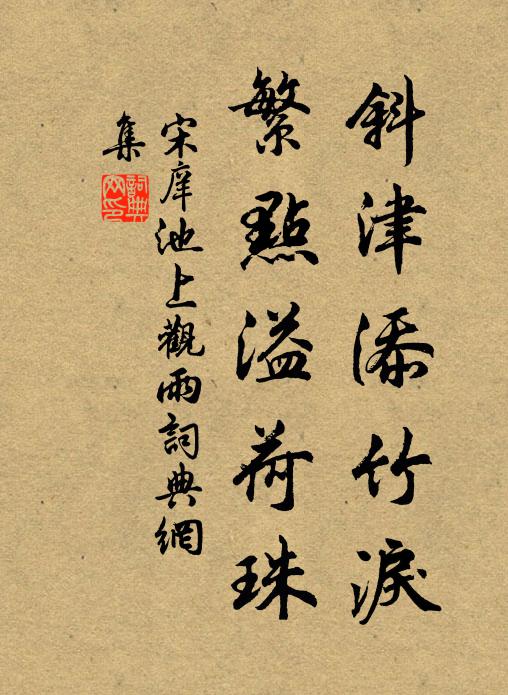 斜津添竹淚
繁點溢荷珠
宋庠池上觀雨詞典網
集
詞典網印